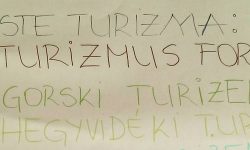 STE TURIZMA:
TURIZMUS FOR
GORSKI TURIZE
HEGYVIDÉKI TUR